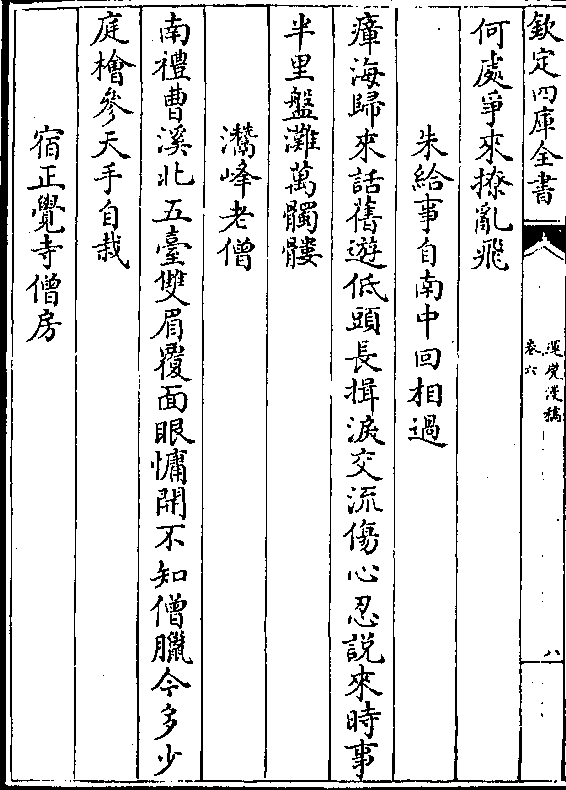 欽定四庫全書
運甓漫稿
卷六
八
何處爭來撩亂飛
朱給事自南中回相過
瘴海歸來話舊遊低頭長揖淚交流傷心忍説來時事
半里盤灘萬髑髏
灊峰老僧
南禮曹溪北五臺雙眉覆面眼慵開不知僧臘今多少
庭檜參天手自栽
宿正覺寺僧房